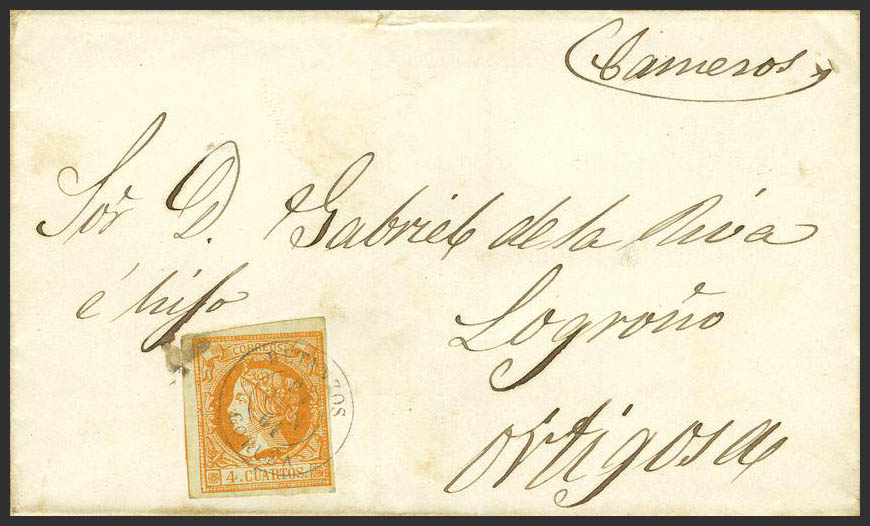 Cameros
Sor D. Gabriel de la Riva
é hijo
Logroño
Ortigosa
CORREOS
BETANZOS
4. CUARTOS.